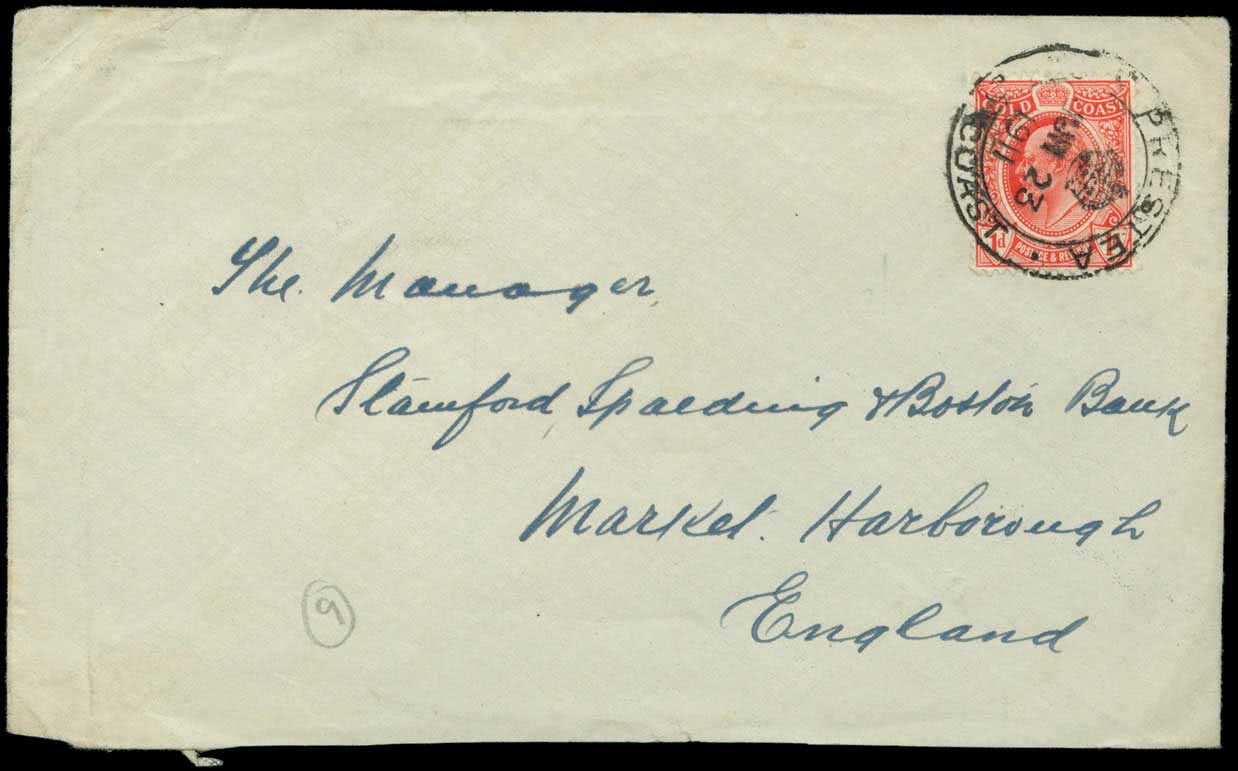 GOLD COAST
1d POSTAGE & REVENUE
PRESTEA
COAST
23
1911
The Manager
Stamford, Spalding & Boston Bank
Market Harborough
England
9